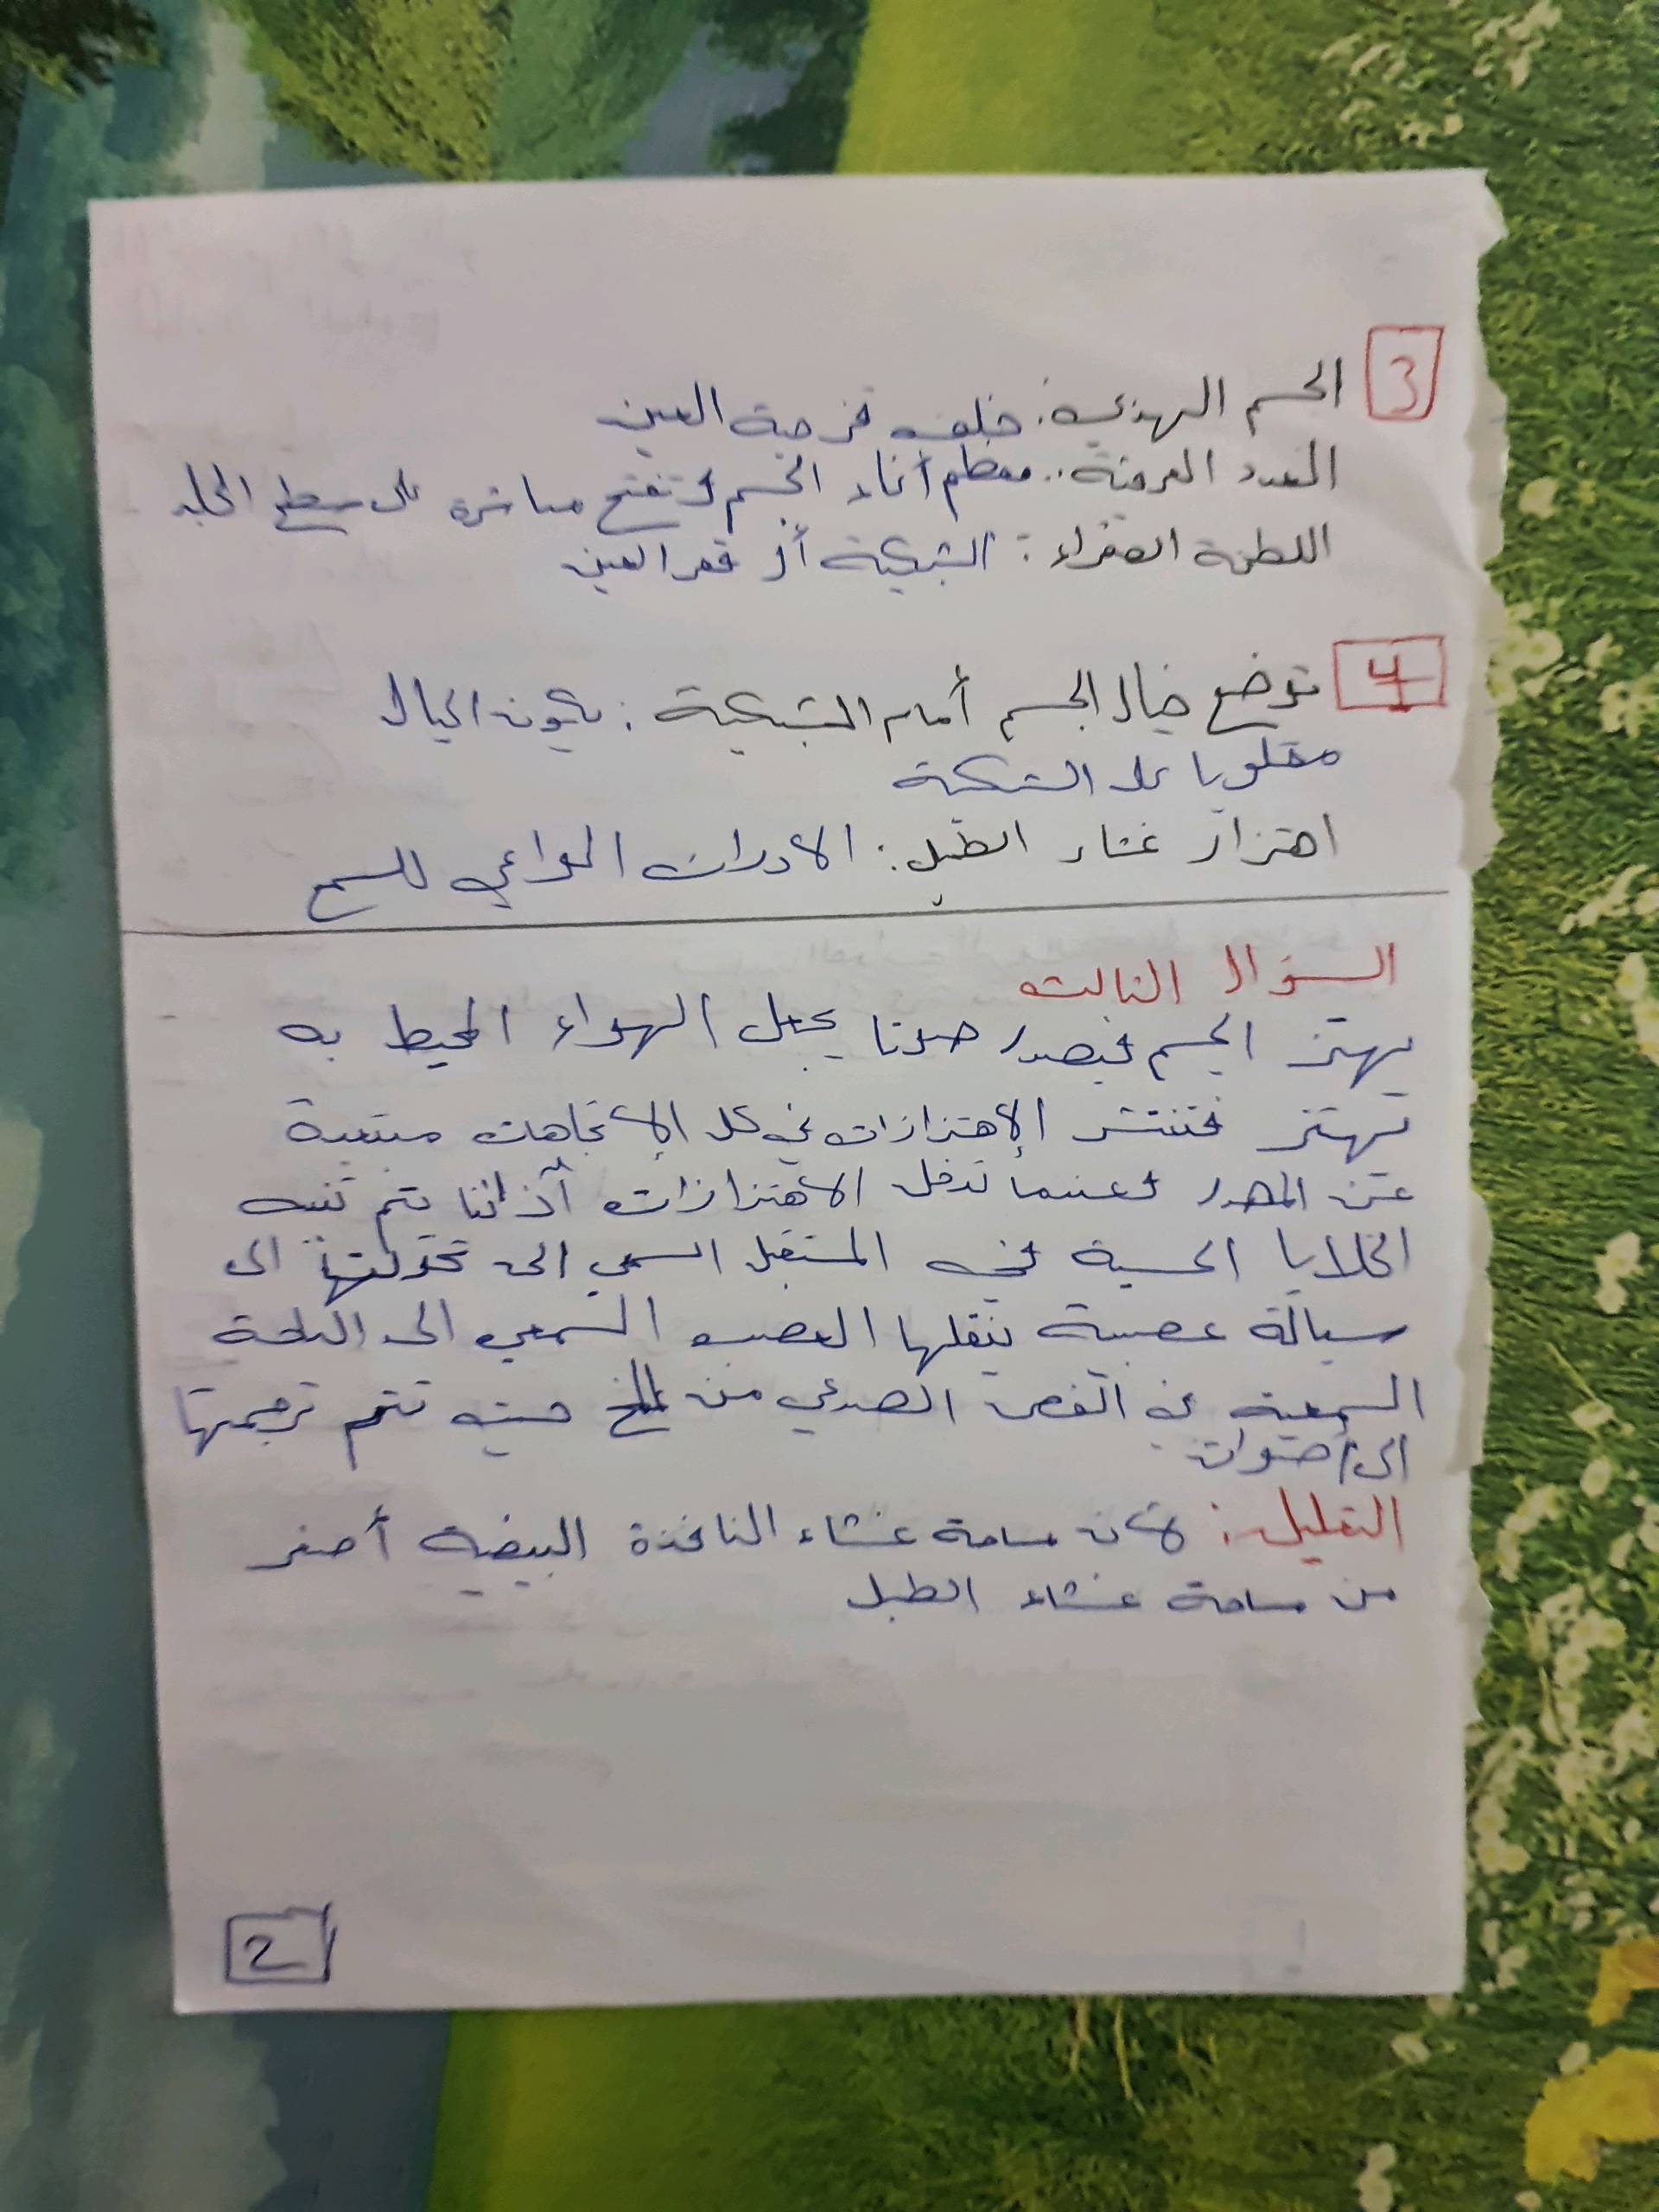 3
الجسم الهدبي: خلف قزحية العين
الغدد العرقية: معظم أنحاء الجسم وتنفتح مباشرة على سطح الجلد
اللطخة الصفراء: الشبكية أو قعر العين
4
توضع خيال الجسم أمام الشبكية: يكون الخيال
مقلوبا على الشبكة
اهتزاز غشاء الطبل: الادراك الواعي للسمع
السؤال الثالث
يهتز الجسم فيصدر صوتا يجعل الهواء المحيط به
تهتز فتنتشر الإهتزازات في كل الإتجاهات مبتعدة
عن المصدر وعندما تدخل الاهتزازات آذاننا يتم تنبيه
الخلايا الحسية في المستقبل السمعي الى تحولتها الى
سيالة عصبية ينقلها العصب السمعي الى الباحة
السمعية في الفص الصدغي من المخ حيث تتم ترجمتها
الى أصوات
التعليل: لأن مساحة غشاء النافذة البيضية أصغر
من مساحة غشاء الطبل
2